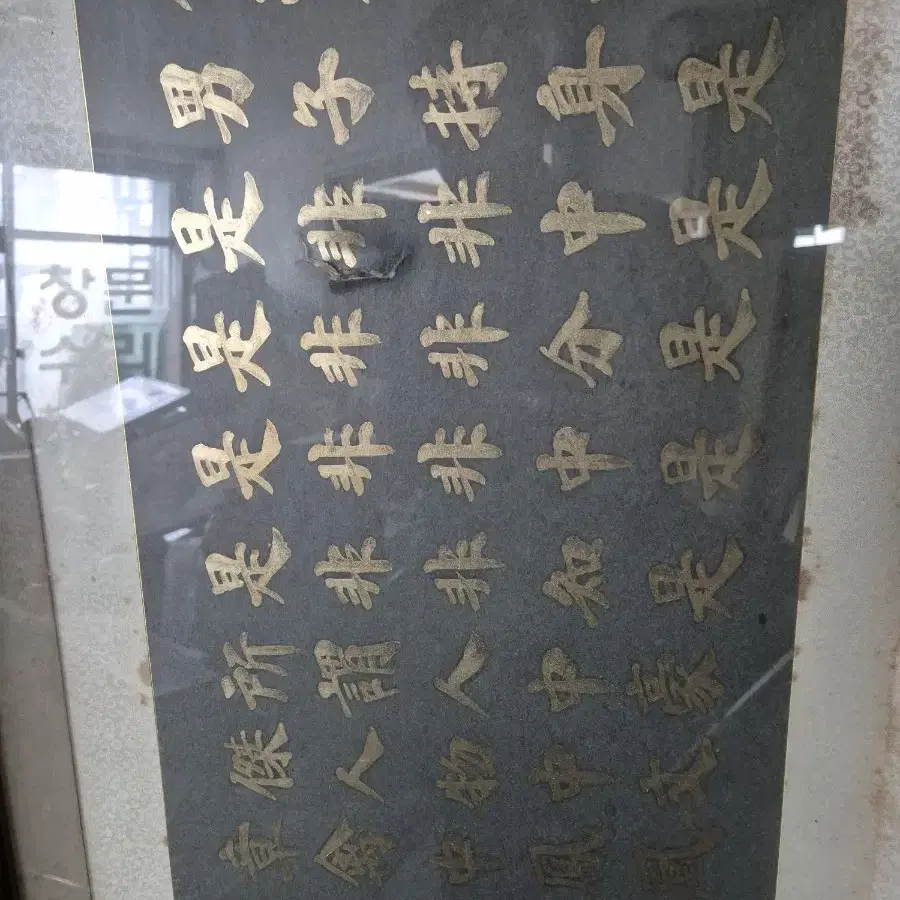 男子持身是
是非非中是
是非非分是
是非非中是
是非非知是
所謂人中豪
傑人物中文
章禽中鳳凰
창문